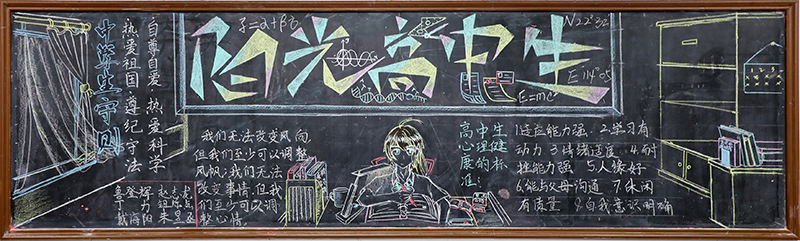 阳光高中生
中学生守则
自尊自爱·热爱科学
热爱祖国·遵纪守法
E=mc²
我们无法改变风向,
但我们至少可以调整
风帆;我们无法
改变事情,但我
们至少可以调
整心情。
高中生
心理健
康的标
准:
1.适应能力强 2.学习有
动力 3.情绪适度 4.耐
挫能力强 5.人缘好
6.能与父母沟通 7.休闲
有质量 8.自我意识明确